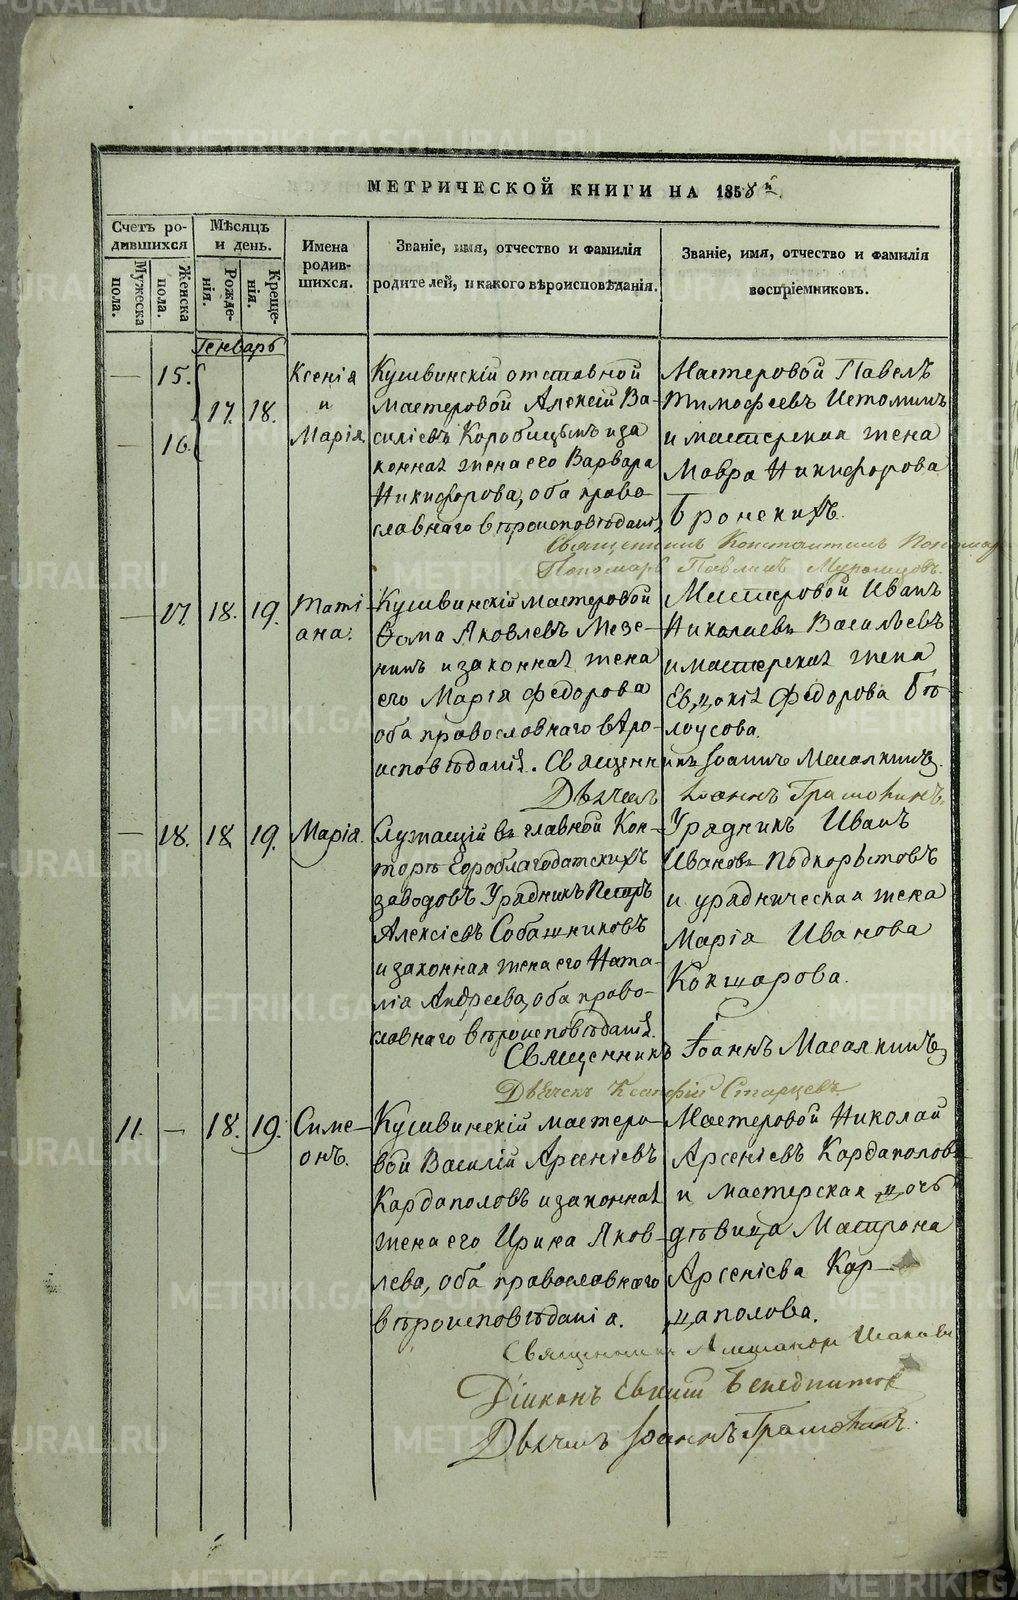 МЕТРИЧЕСКОЙ КНИГИ НА 1858й
Счетъ родившихся
Мѣсяцъ и день.
Имена родившихся.
Званіе, имя, отчество и фамилія родителей, и какого вѣроисповѣданія.
Званіе, имя, отчество и фамилія воспріемниковъ.
Мужеска пола.
Женска пола.
Рожденія.
Крещенія.
Генварь
— 15. 17. 18. Ксенія
и
— 16. Марія
Кушвинскій отставной
мастеровой Алексій Ва-
силіевъ Коробицынъ и за
конная жена его Варвара
Никифорова, оба право-
славнаго вѣроисповѣданія
Мастеровой Павелъ
Тимофеевъ Истоминъ
и мастерская жена
Мавра Никифорова
Бронскихъ.
Священникъ Константинъ
Пономарь Павлинъ
— 17. 18. 19. Тати-
ана.
Кушвинскій мастеровой
Ѳома Яковлевъ Мезе-
нинъ и законная жена
его Марія Федорова
оба православнаго вѣро-
исповѣданія.
Мастеровой Иванъ
Николаевъ Васильевъ
и мастерская жена
Евдокія Федорова Бѣ-
лоусова.
Священникъ Іоаннъ Масалкинъ
Дьячекъ Іоаннъ Грамотинъ
— 18. 18. 19. Марія.
Служащій въ главной Кон-
торѣ Гороблагодатскихъ
заводовъ Урядникъ Петръ
Алексіевъ Собашниковъ
и законная жена его Ната-
лія Андреева, оба право-
славнаго вѣроисповѣданія.
Урядникъ Иванъ
Ивановъ Подкорытовъ
и урядническая жена
Марія Иванова
Кокшарова.
Священникъ Іоаннъ Масалкинъ
Дьячекъ Ксенофій Старцевъ
11. — 18. 19. Симе-
онъ.
Кушвинскій мастеро-
вой Василій Арсеніевъ
Кардаполовъ и законная
жена его Ирина Яков-
лева, оба православнаго
вѣроисповѣданія.
Мастеровой Николай
Арсеніевъ Кардаполовъ
и мастерская дочь
дѣвица Матрона
Арсеніева Кар-
даполова.
Священникъ
Діаконъ Евгеній
Дьячекъ Іоаннъ Грамотинъ.
METRIKI.GASO-URAL.RU